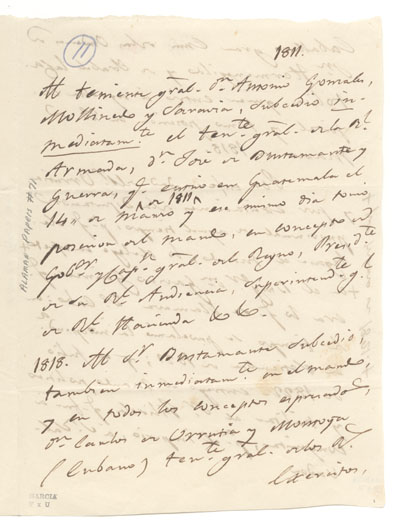 11
1811.
Al teniente gral. Dn. Antonio Gonzales,
Mollinedo y Saravia, subcedio in-
mediatamte. el tente. gral. de la Rl.
Armada, Dn. Jose de Bustamante y
Guerra, qe. entró en Guatemala el
14 de Marzo de 1811 y ese mismo dia tomó
posesion del mando, en concepto de
Gobor. y Capn. gral. del Reyno, Presidte.
de la Rl. Audiencia, Superintendte. gl.
de Rl. Hacienda &c &c.
1818. Al Sr. Bustamante subcedio,
tambien inmediatamte. en el mando,
y en todos los conceptos espresados,
Dn. Carlos de Urrutia y Montoya
(Cubano) tente. gral. de los Rs.
Exercitos,